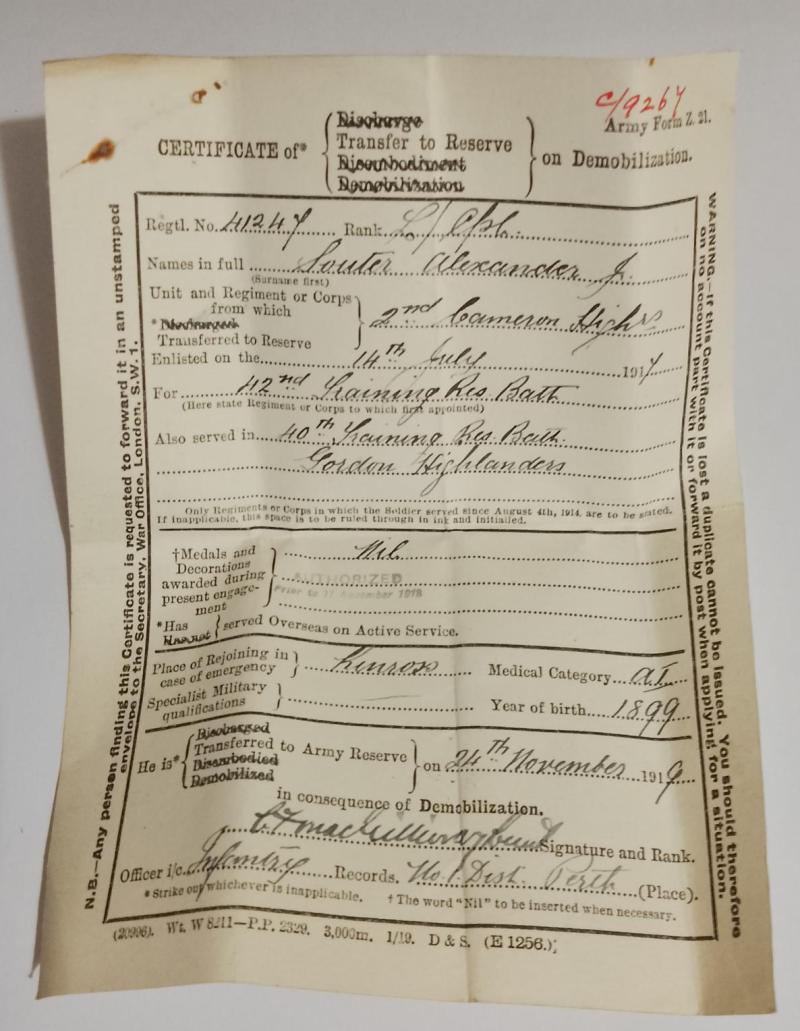 C/9267
Army Form Z. 21.
CERTIFICATE of*
Discharge
Transfer to Reserve
Disembodiment
Demobilization
on Demobilization.
Regtl. No. 41247 Rank L/Cpl.
Names in full Souter Alexander J.
(Surname first)
Unit and Regiment or Corps
from which
* Discharged
Transferred to Reserve
2nd Cameron Highrs
Enlisted on the 14th July 1917
For 42nd Training Res Battn
(Here state Regiment or Corps to which first appointed)
Also served in 40th Training Res Battn.
Gordon Highlanders
Only Regiments or Corps in which the Soldier served since August 4th, 1914, are to be stated.
If inapplicable, this space is to be ruled through in ink and initialled.
†Medals and
Decorations
awarded during
present engage-
ment
Nil
AUTHORIZED
Prior to 11 November 1918
*Has
Has not
served Overseas on Active Service.
Place of Rejoining in
case of emergency
Kinross
Medical Category AI
Specialist Military
qualifications
Year of birth 1899
He is*
Discharged
Transferred to Army Reserve
Disembodied
Demobilized
on 24th November 1919
in consequence of Demobilization.
Signature and Rank.
Officer i/c Infantry Records. No. 1 Dist. Perth (Place).
* Strike out whichever is inapplicable. † The word "Nil" to be inserted when necessary.
(20996). Wt. W 8211—P.P. 2329. 3,000m. 1/19. D & S. (E 1256.)
N.B.—Any person finding this Certificate is requested to forward it in an unstamped
envelope to the Secretary, War Office, London, S.W. 1.
WARNING.—If this Certificate is lost a duplicate cannot be issued. You should therefore
on no account part with it or forward it by post when applying for a situation.